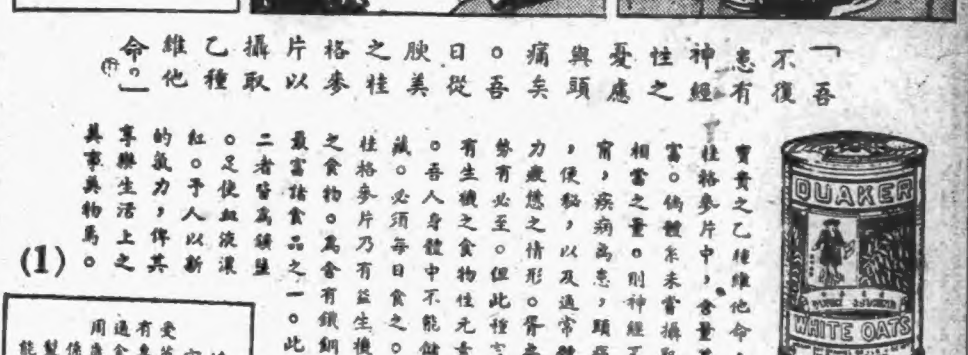 「吾
不復
患有
神經
性之
憂慮
與頭
痛矣
。吾
日從
腴美
之桂
格麥
片以
攝取
乙種
維他
命。」
寶貴之乙種維他命
桂格麥片中,含量
富。倘體系未嘗攝取
相當之量。則神經不
甯,疾病為患,頭痛
,便秘,以及通常體
力疲憊之情形。胥為
勢有必至。但此種
有生機之食物性元素
。吾人身體中不能儲
藏。必須每日食之。
桂格麥片乃有益生機
之食物。為含有鐵銅
最富諸食品之一。此
二者皆為鑛鹽
。足使血液濃
紅。予人以新
的氣力,俾其
享樂生活上之
美事美物焉。
(1)
QUAKER
WHITE OATS